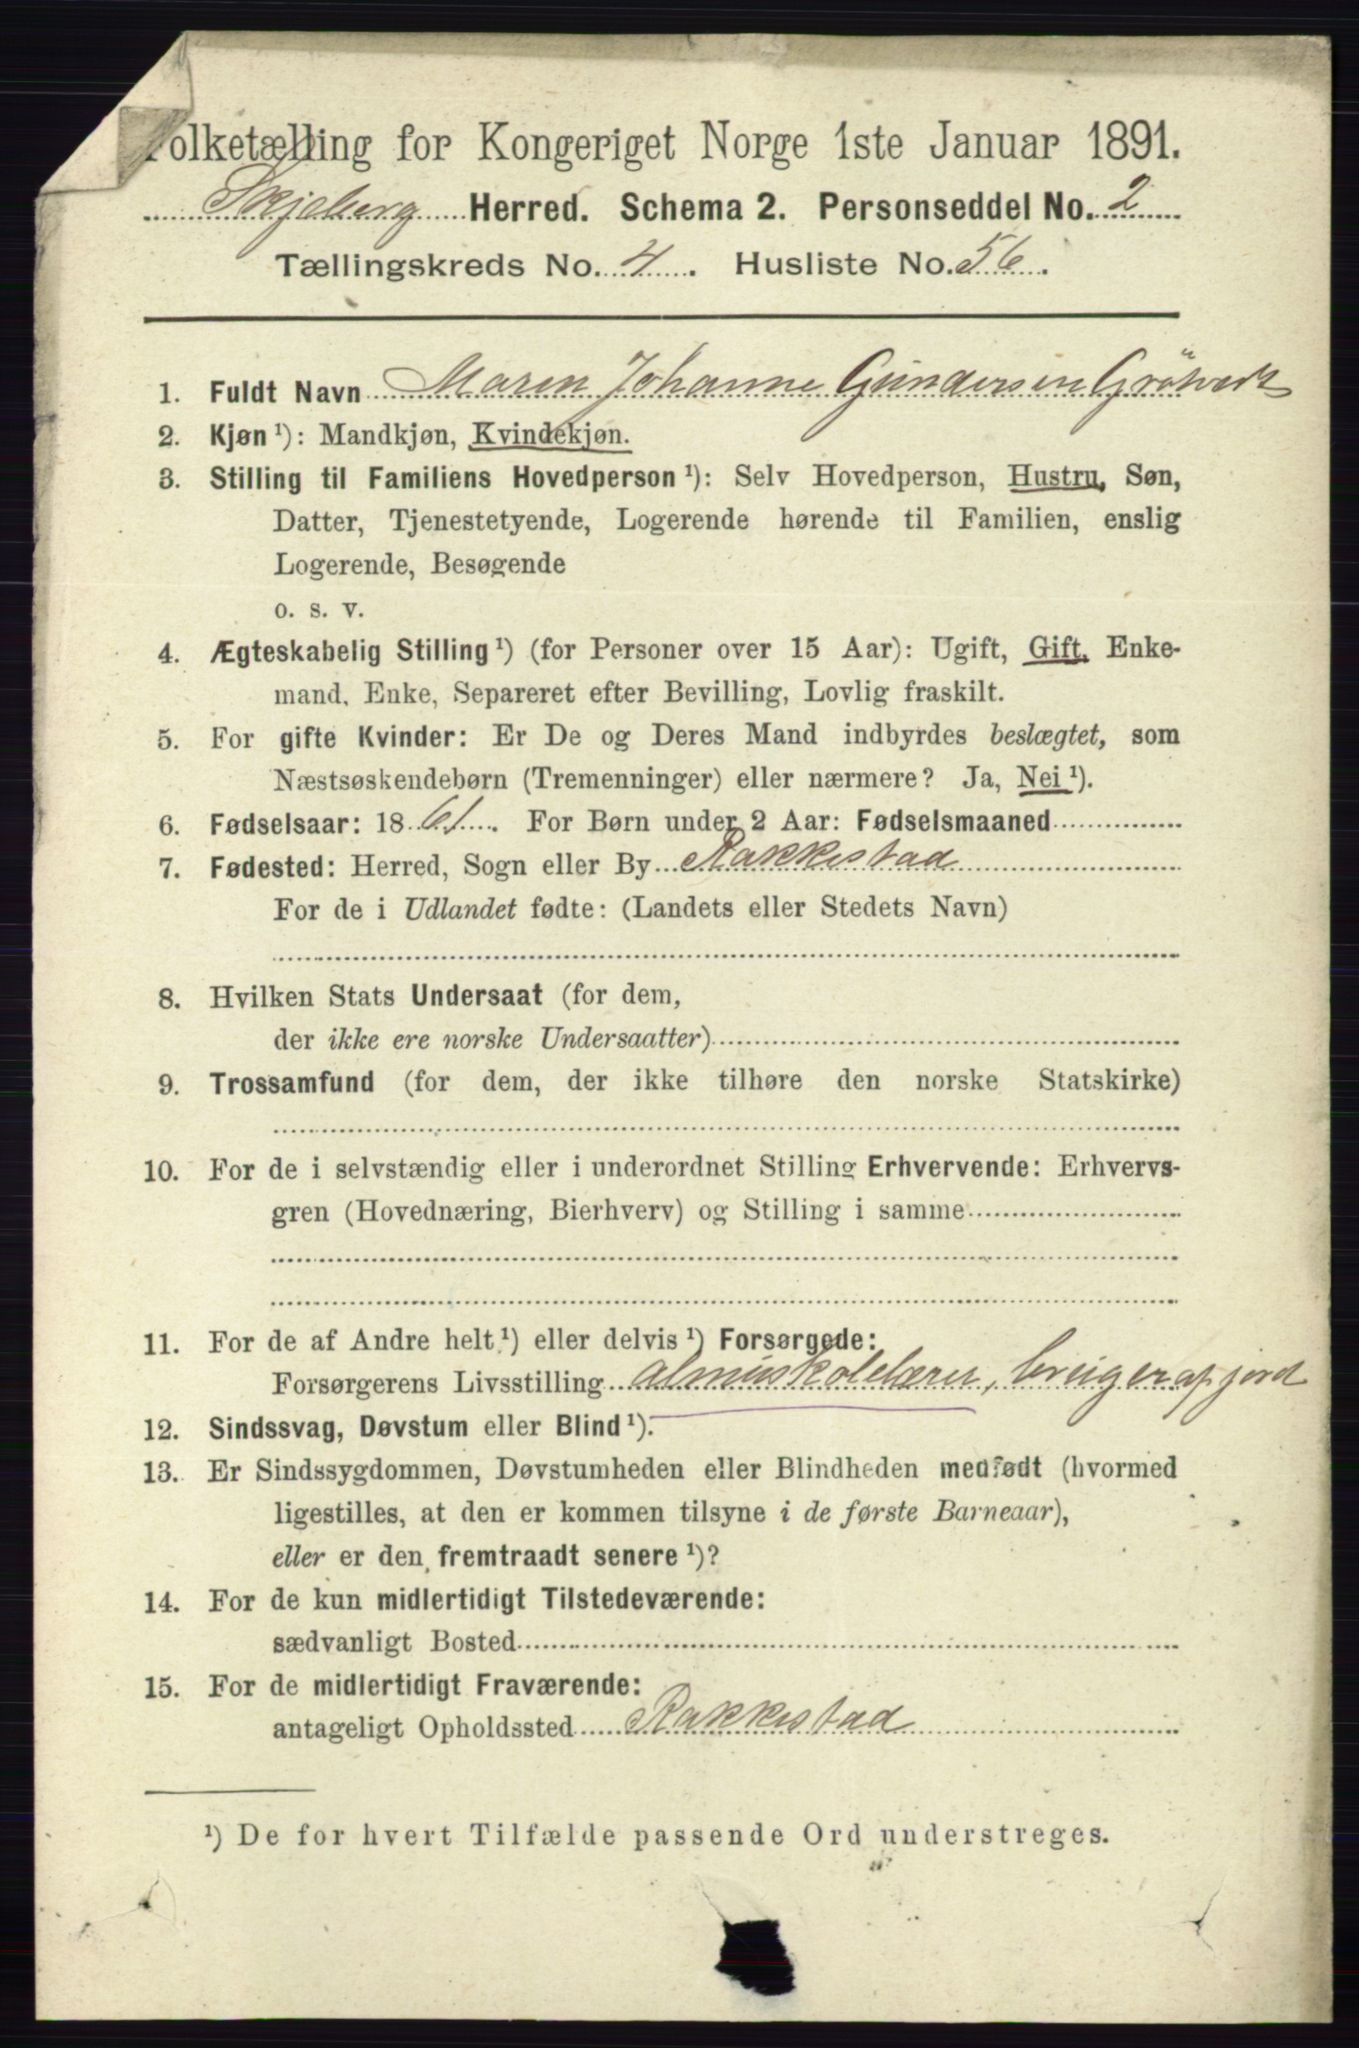 Folketælling for Kongeriget Norge 1ste Januar 1891.
Skjeberg Herred. Schema 2. Personseddel No. 2
Tællingskreds No. 4. Husliste No. 56.
1. Fuldt Navn Maren Johanne Gundersen
2. Kjøn ¹): Mandkjøn, Kvindekjøn.
3. Stilling til Familiens Hovedperson ¹): Selv Hovedperson, Hustru, Søn,
Datter, Tjenestetyende, Logerende hørende til Familien, enslig
Logerende, Besøgende
o. s. v.
4. Ægteskabelig Stilling ¹) (for Personer over 15 Aar): Ugift, Gift, Enke-
mand, Enke, Separeret efter Bevilling, Lovlig fraskilt.
5. For gifte Kvinder: Er De og Deres Mand indbyrdes beslægtet, som
Næstsøskendebørn (Tremenninger) eller nærmere? Ja, Nei ¹).
6. Fødselsaar: 1861. For Børn under 2 Aar: Fødselsmaaned
7. Fødested: Herred, Sogn eller By Rakkestad
For de i Udlandet fødte: (Landets eller Stedets Navn)
8. Hvilken Stats Undersaat (for dem,
der ikke ere norske Undersaatter)
9. Trossamfund (for dem, der ikke tilhøre den norske Statskirke)
10. For de i selvstændig eller i underordnet Stilling Erhvervende: Erhvervs-
gren (Hovednæring, Bierhverv) og Stilling i samme
11. For de af Andre helt ¹) eller delvis ¹) Forsørgede:
Forsørgerens Livsstilling almuskolelærer, bruger af jord
12. Sindssvag, Døvstum eller Blind ¹).
13. Er Sindssygdommen, Døvstumheden eller Blindheden medfødt (hvormed
ligestilles, at den er kommen tilsyne i de første Barneaar),
eller er den fremtraadt senere ¹)?
14. For de kun midlertidigt Tilstedeværende:
sædvanligt Bosted
15. For de midlertidigt Fraværende:
antageligt Opholdssted Rakkestad
¹) De for hvert Tilfælde passende Ord understreges.